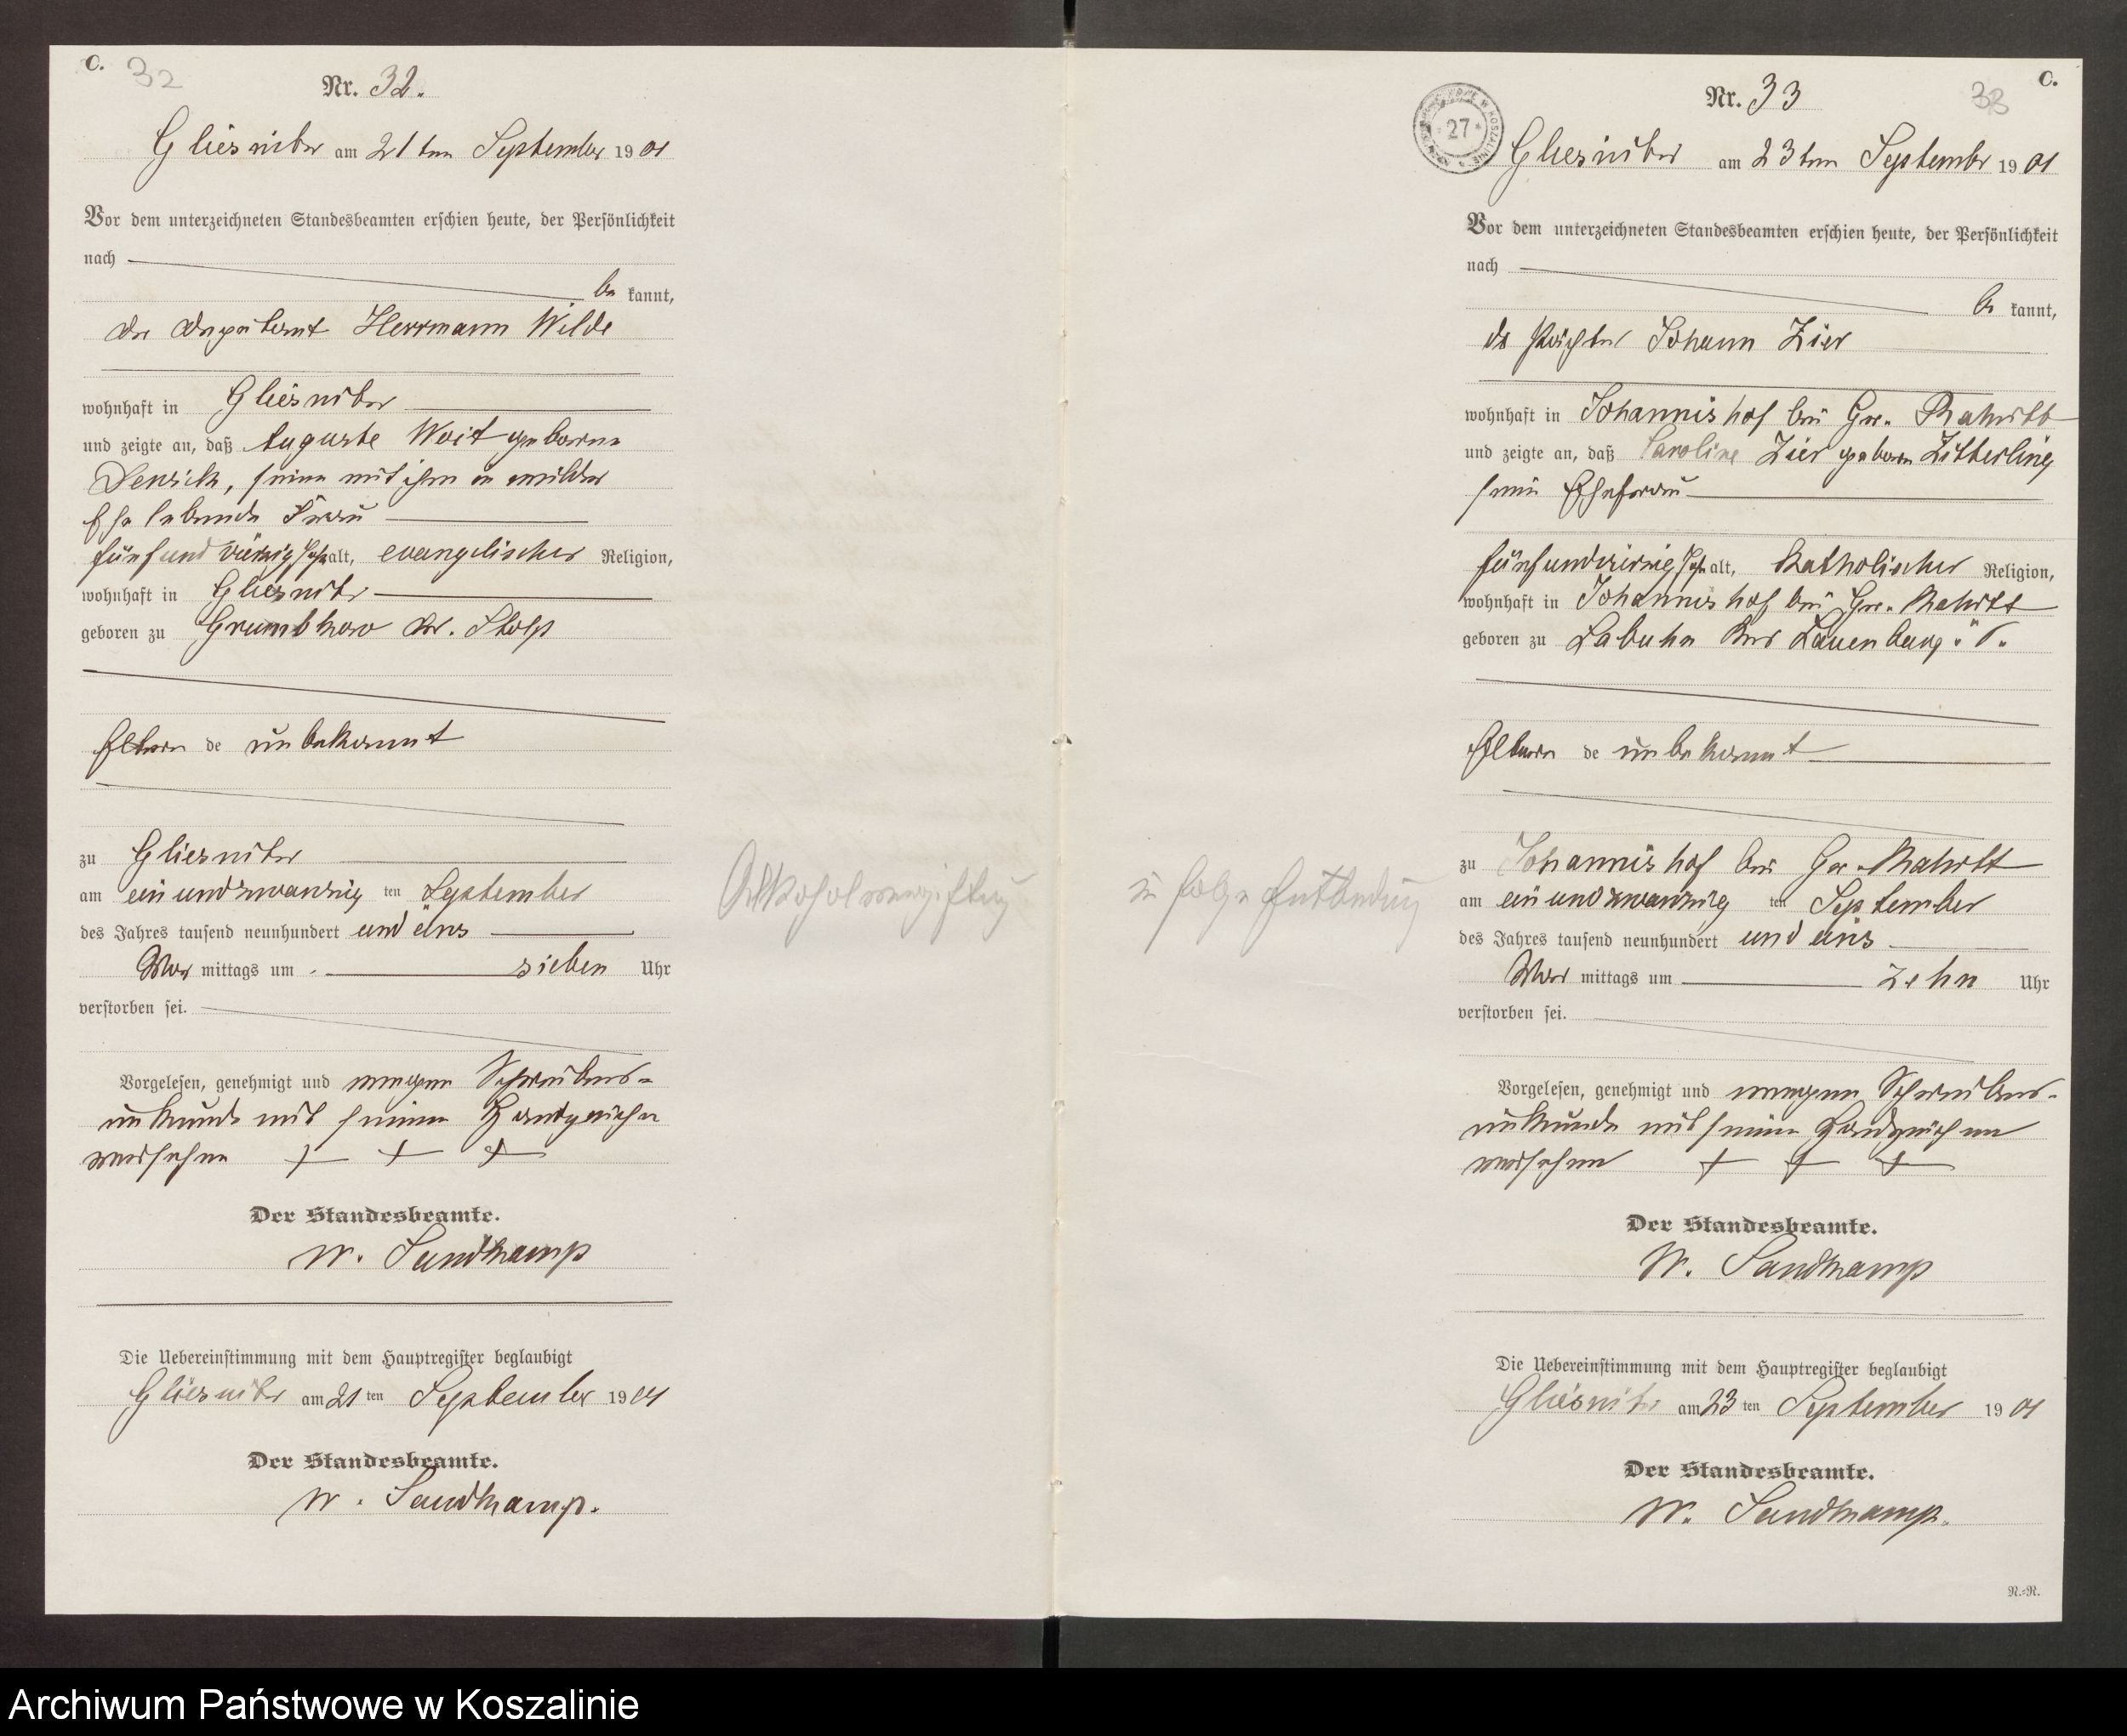 C. 32
Nr. 32.
Gliesnitz am 21ten September 1901
Vor dem unterzeichneten Standesbeamten erschien heute, der Persönlichkeit
nach
be kannt,
der Deputant Herrmann Wilde
wohnhaft in Gliesnitz
und zeigte an, daß Auguste Woit geborene
seine mit ihm in wilder
Ehe lebende Frau
fünfundvierzig Jahr alt, evangelischer Religion,
wohnhaft in Gliesnitz
geboren zu Grumbkow Kr. Stolp
Eltern de unbekannt
zu Gliesnitz
am einundzwanzig ten September
des Jahres tausend neunhundert und eins
Vor mittags um sieben Uhr
verstorben sei.
Vorgelesen, genehmigt und wegen Schreibens-
unkunde mit seinem Handzeichen
versehen + + +
Der Standesbeamte.
W. Sandkamp
Die Uebereinstimmung mit dem Hauptregister beglaubigt
Gliesnitz am 21 ten September 1901
Der Standesbeamte.
W. Sandkamp.
Alkoholvergiftung
C.
33
Nr. 33
27
Gliesnitz am 23ten September 1901
Vor dem unterzeichneten Standesbeamten erschien heute, der Persönlichkeit
nach
be kannt,
der Pächter Johann Zier
wohnhaft in Johannishof bei Gr. Rakitt
und zeigte an, daß Caroline Zier geboren Zitterling
seine Ehefrau
fünfundvierzig Jahr alt, katholischer Religion,
wohnhaft in Johannishof bei Gr. Rakitt
geboren zu Labuhn Kreis Lauenburg
Eltern de unbekannt
zu Johannishof bei Gr. Rakitt
am einundzwanzig ten September
des Jahres tausend neunhundert und eins
Vor mittags um zehn Uhr
verstorben sei.
Vorgelesen, genehmigt und wegen Schreibens-
unkunde mit seinem Handzeichen
versehen + + +
Der Standesbeamte.
W. Sandkamp
Die Uebereinstimmung mit dem Hauptregister beglaubigt
Gliesnitz am 23 ten September 1901
Der Standesbeamte.
W. Sandkamp.
in folge Entbindung
N.-N.
Archiwum Państwowe w Koszalinie